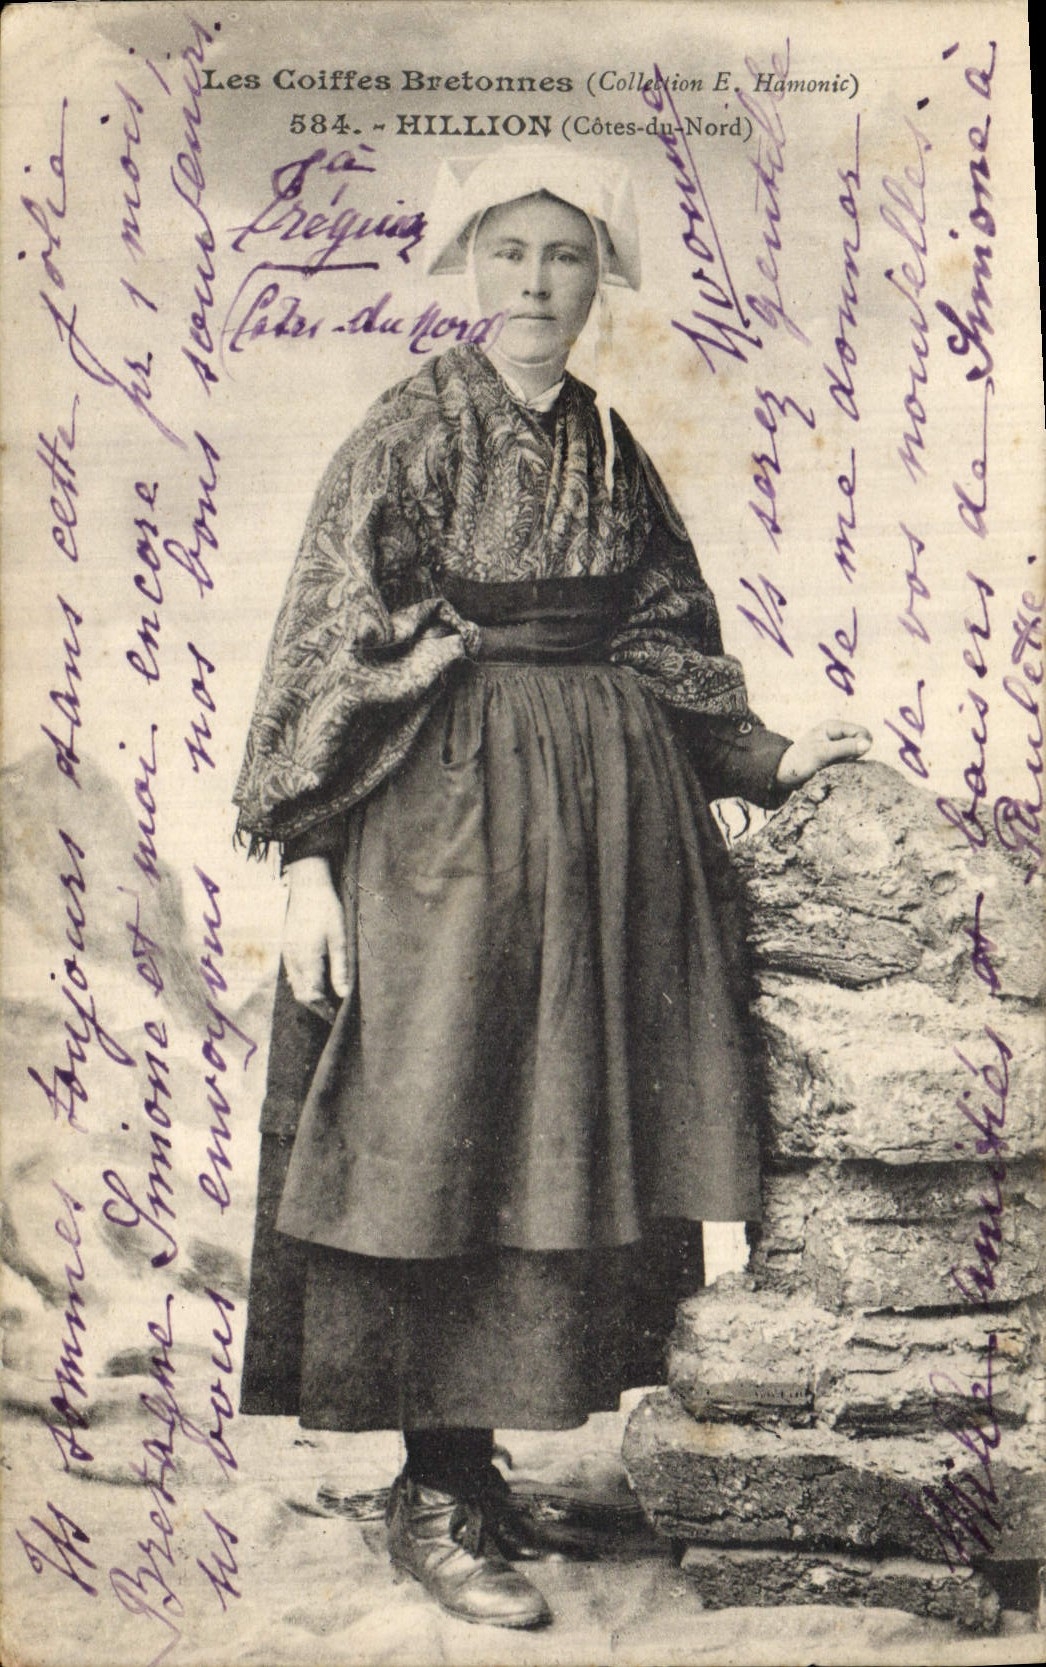 Les Coiffes Bretonnes (Collection E. Hamonic)
584. - HILLION (Côtes-du-Nord)
à
Tréguier
(Côtes-du-Nord)
Ns sommes toujours dans cette jolie
Bretagne Simone et moi encore pr 1 mois!
ns vous envoyons nos bons souvenirs.
Yvonne
Vs serez gentille
de me donner
de vos nouvelles.
Mille amitiés et baisers de Simone à
Paulette.